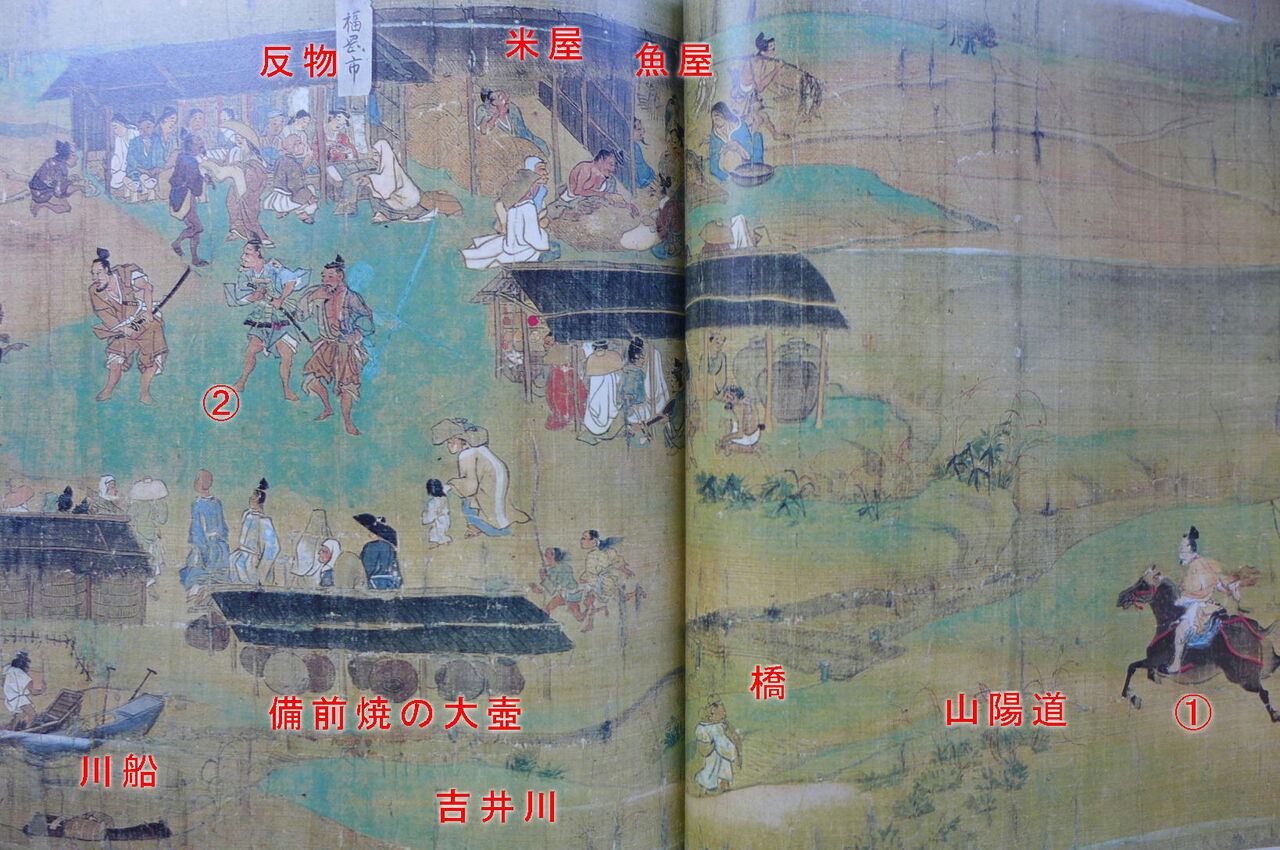 福岡市
反物
米屋
魚屋
②
橋
山陽道
①
備前焼の大壺
川船
吉井川